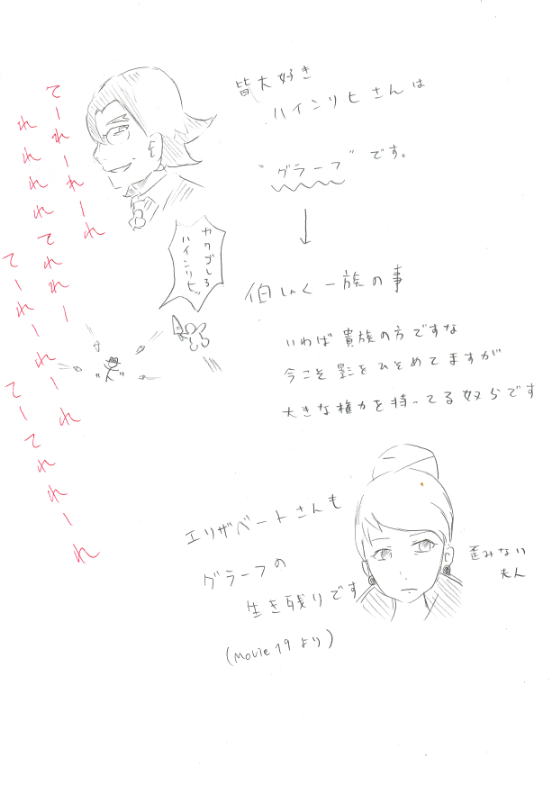 皆大好き
ハインリヒさんは
"グラーフ"です。
伯しゃく一族の事
いわば貴族の方ですな
今こそ影をひそめてますが
大きな権力を持ってる奴らです
カクゴしろ
ハインリヒッ
てーれーれーれ
れれれれてれれー
てーれーれーれ
てーてれれーれ
エリザベートさんも
グラーフの
生き残りです
(Movie19より)
歪みない
夫人